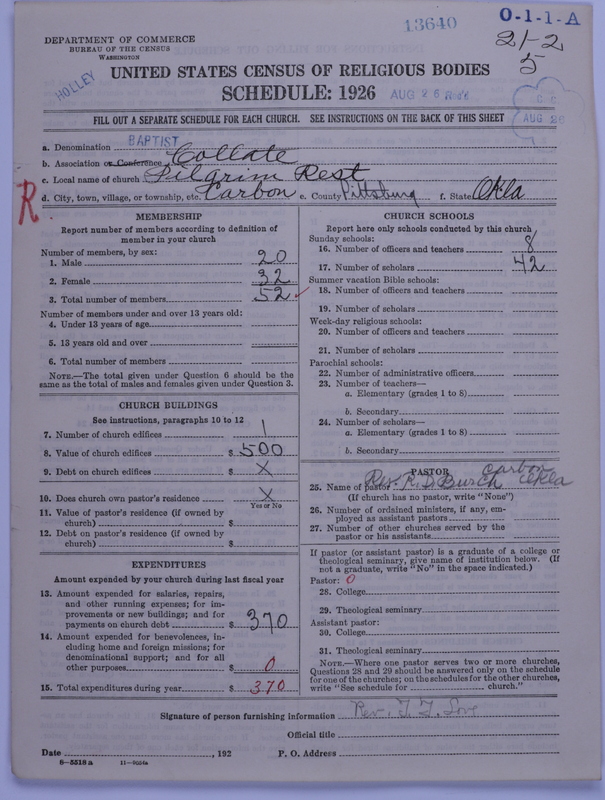 13640
O-1-1-A
21-2
5
DEPARTMENT OF COMMERCE
BUREAU OF THE CENSUS
WASHINGTON
HOLLEY
UNITED STATES CENSUS OF RELIGIOUS BODIES
SCHEDULE: 1926
AUG 26
AUG 26
FILL OUT A SEPARATE SCHEDULE FOR EACH CHURCH. SEE INSTRUCTIONS ON THE BACK OF THIS SHEET
a. Denomination BAPTIST
b. Association or Conference Collate
c. Local name of church Pilgrim Rest
R
d. City, town, village, or township, etc. Carbon e. County Pittsburg f. State Okla
MEMBERSHIP
Report number of members according to definition of
member in your church
Number of members, by sex:
1. Male 20
2. Female 32
3. Total number of members 52 ✓
Number of members under and over 13 years old:
4. Under 13 years of age
5. 13 years old and over
6. Total number of members
NOTE.—The total given under Question 6 should be the
same as the total of males and females given under Question 3.
CHURCH BUILDINGS
See instructions, paragraphs 10 to 12
7. Number of church edifices 1
8. Value of church edifices $ 500
9. Debt on church edifices $ X
10. Does church own pastor's residence X
Yes or No
11. Value of pastor's residence (if owned by
church) $
12. Debt on pastor's residence (if owned by
church) $
EXPENDITURES
Amount expended by your church during last fiscal year
13. Amount expended for salaries, repairs,
and other running expenses; for im-
provements or new buildings; and for
payments on church debt $ 370
14. Amount expended for benevolences, in-
cluding home and foreign missions; for
denominational support; and for all
other purposes $ 0
15. Total expenditures during year $ 370
CHURCH SCHOOLS
Report here only schools conducted by this church
Sunday schools:
16. Number of officers and teachers 8
17. Number of scholars 42
Summer vacation Bible schools:
18. Number of officers and teachers
19. Number of scholars
Week-day religious schools:
20. Number of officers and teachers
21. Number of scholars
Parochial schools:
22. Number of administrative officers
23. Number of teachers—
a. Elementary (grades 1 to 8)
b. Secondary
24. Number of scholars—
a. Elementary (grades 1 to 8)
b. Secondary
PASTOR
Carbon
25. Name of pastor Rev. R. D. Busch Okla
(If church has no pastor, write "None")
26. Number of ordained ministers, if any, em-
ployed as assistant pastors
27. Number of other churches served by the
pastor or his assistants
If pastor (or assistant pastor) is a graduate of a college or
theological seminary, give name of institution below. (If
not a graduate, write "No" in the space indicated.)
Pastor: 0
28. College
29. Theological seminary
Assistant pastor:
30. College
31. Theological seminary
NOTE.—Where one pastor serves two or more churches,
Questions 28 and 29 should be answered only on the schedule
for one of the churches; on the schedules for the other churches,
write "See schedule for church."
Signature of person furnishing information Rev. T. T. Love
Official title
Date , 192 P. O. Address
8—5518 a 11—9054a